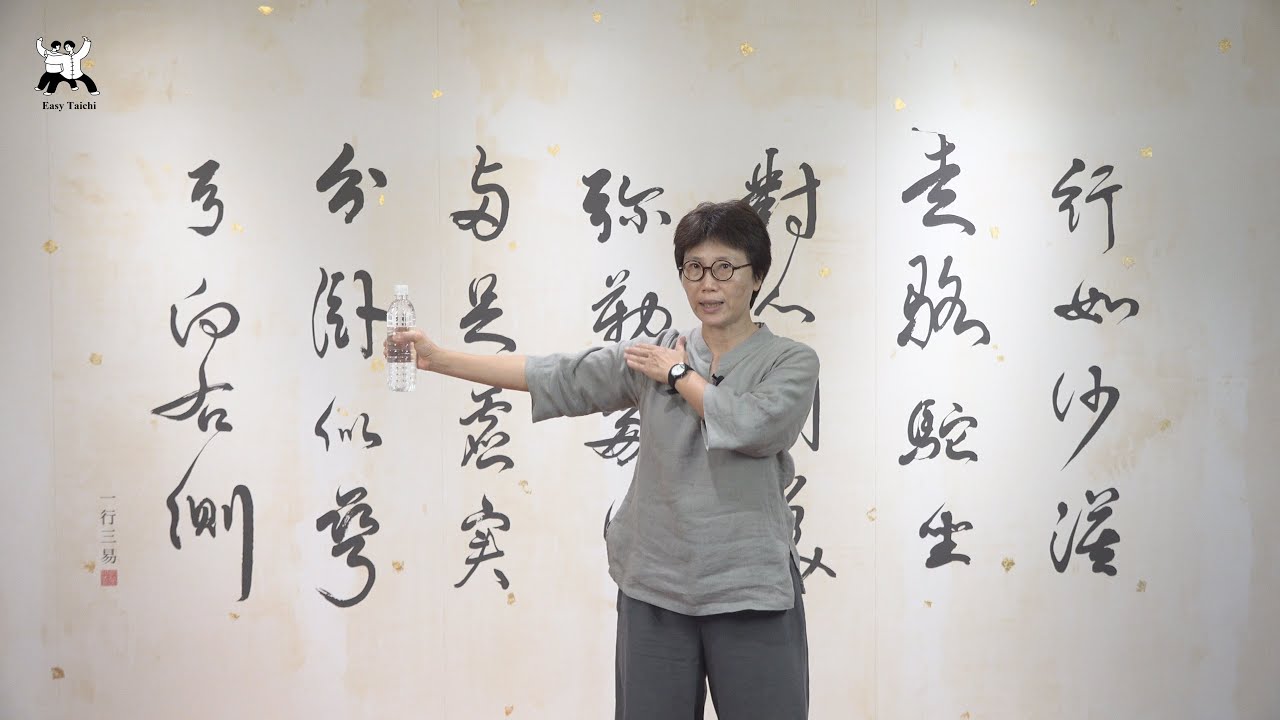 Easy Taichi
行如沙漠
走駱駝坐
對心
弥勒
足虚实
分卧似彎
弓向右側
一行三易